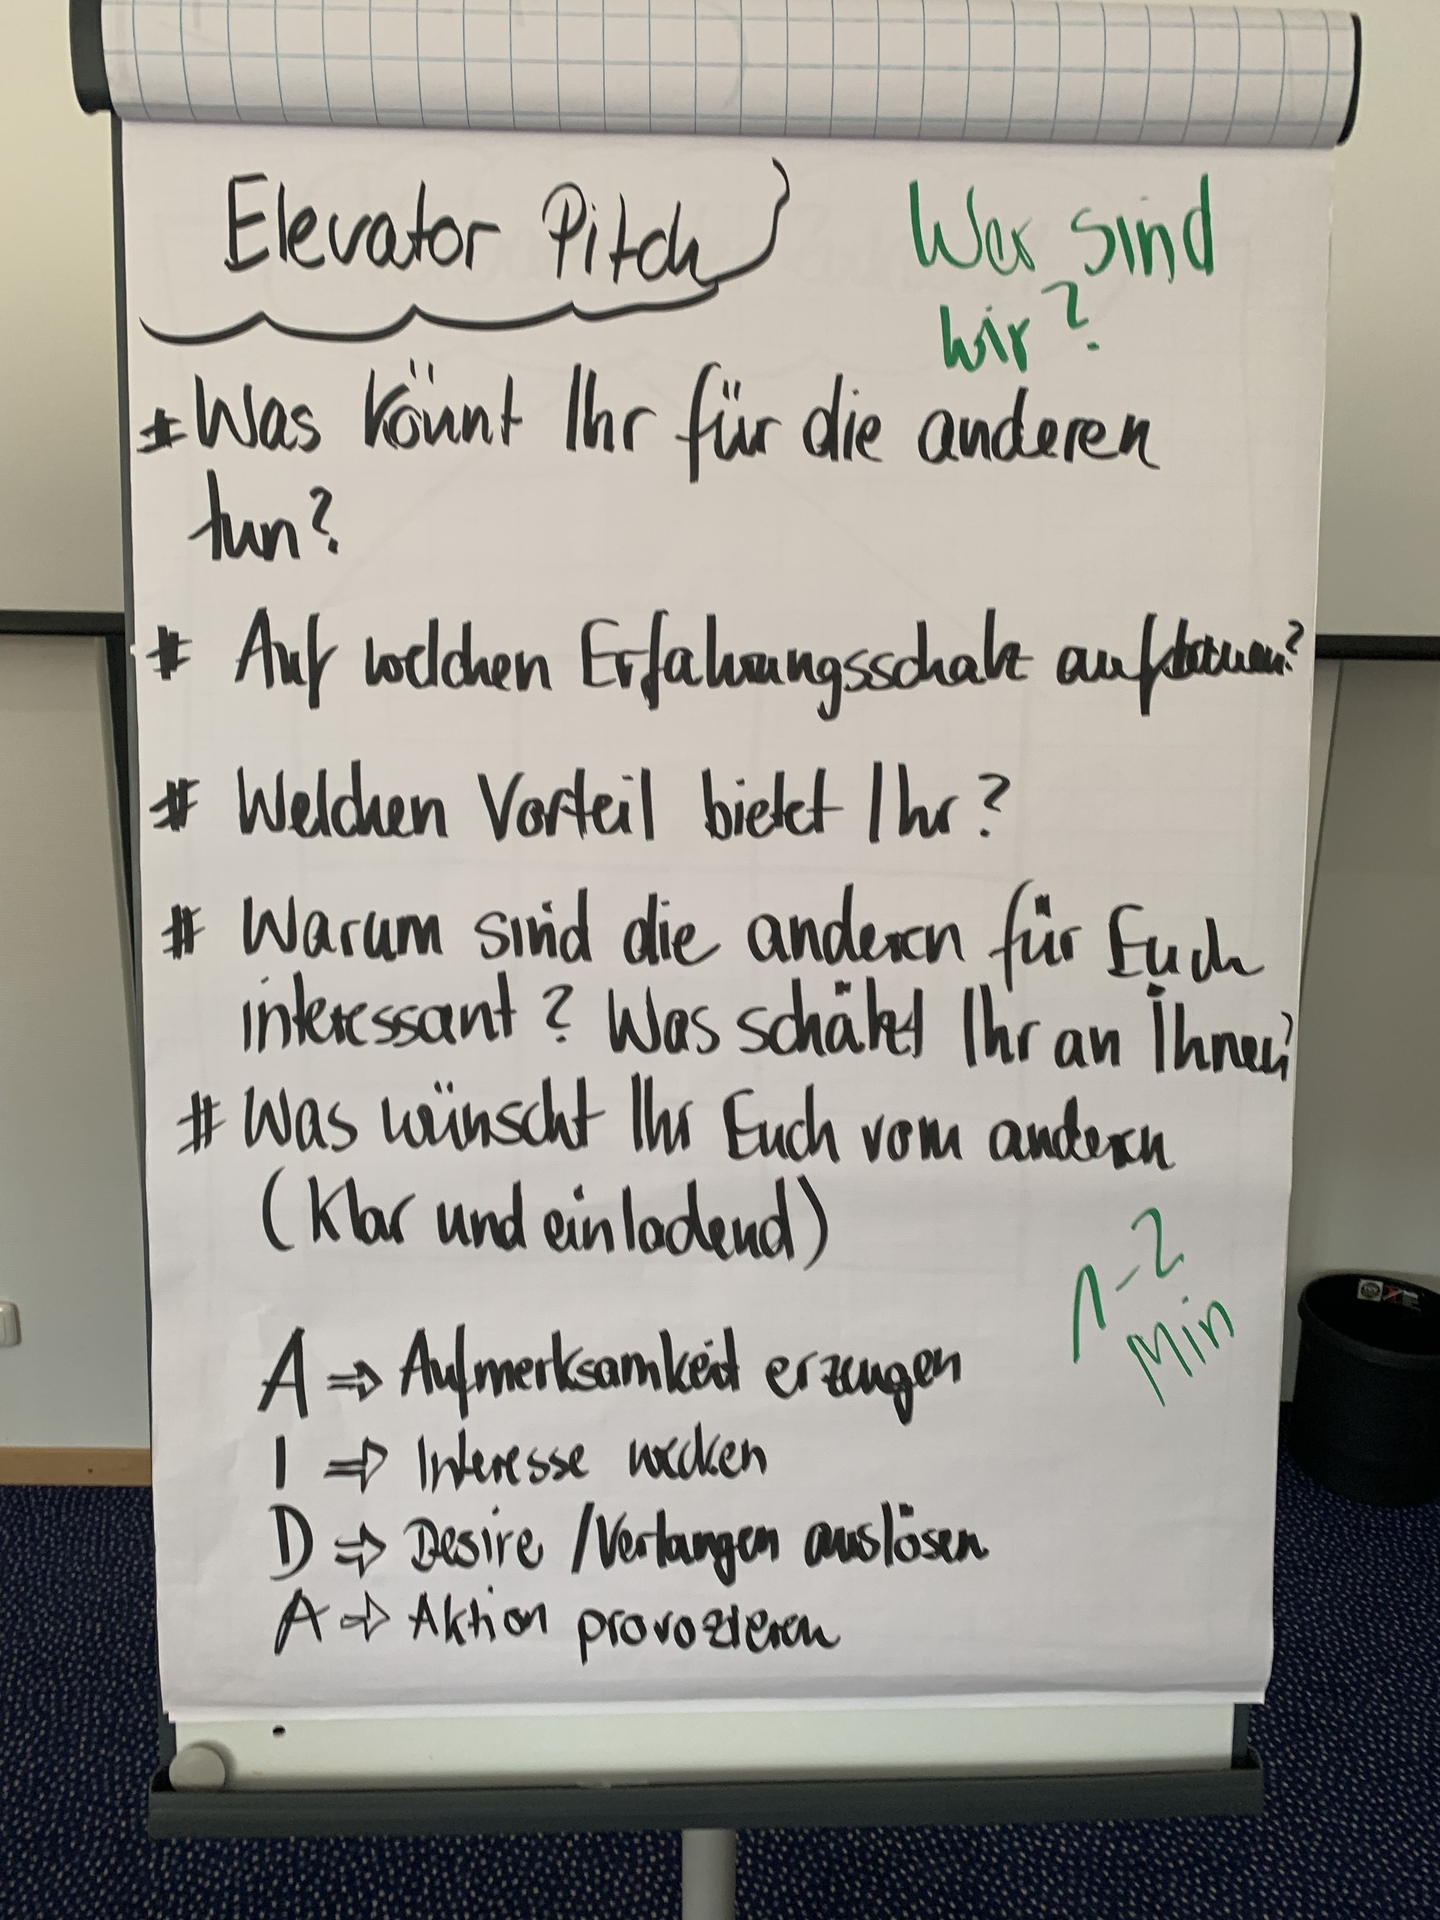 Elevator Pitch
Wer sind
wir?
# Was könnt Ihr für die anderen
tun?
# Auf welchen Erfahrungsschatz aufbauen?
# Welchen Vorteil bietet Ihr?
# Warum sind die anderen für Euch
interessant? Was schätzt Ihr an Ihnen?
# Was wünscht Ihr Euch vom anderen
(Klar und einladend)
1-2
Min
A ⇒ Aufmerksamkeit erzeugen
I ⇒ Interesse wecken
D ⇒ Desire /Verlangen auslösen
A ⇒ Aktion provozieren